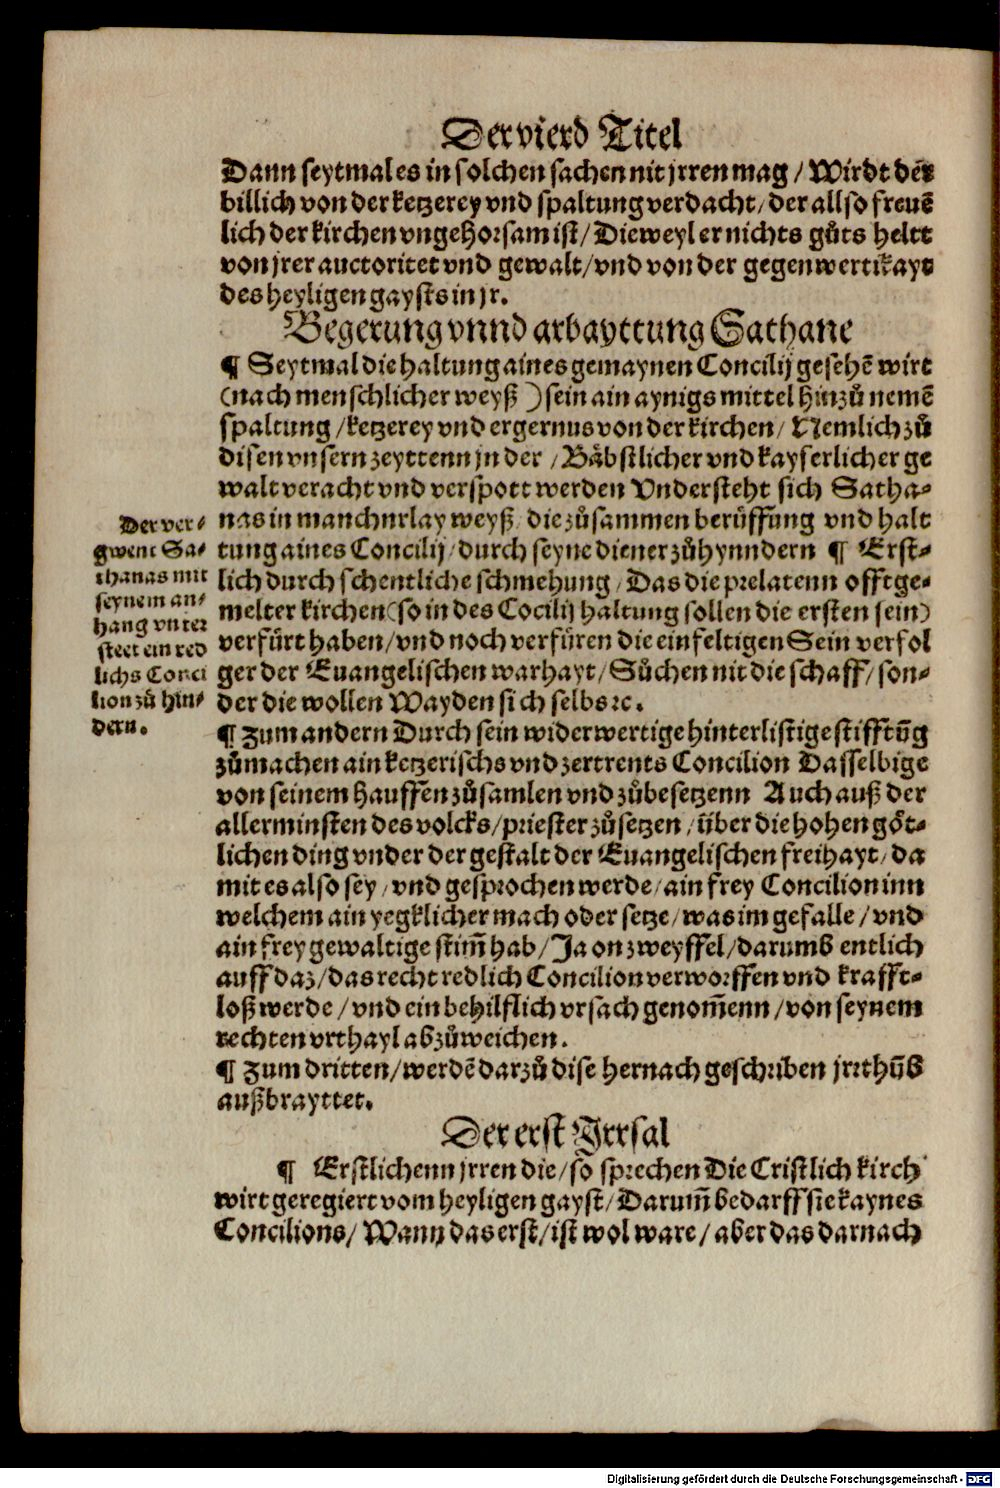 Der vierd Titel
Dann seytmal es in solchen sachen nit jrren mag / Wirdt der
billich von der ketzerey vnd spaltung verdacht / der allso freuẽ
lich der kirchen vngehorsam ist / Dieweyl er nichts gůts heltt
von jrer auctoritet vnd gewalt / vnd von der gegenwertikayt
des heyligen gaysts in jr.
Begerung vnnd arbayttung Sathane
¶ Seytmal die haltung aines gemaynen Concilij gesehẽ wirt
(nach menschlicher weyß ) sein ain aynigs mittel hinzů nemẽ
spaltung / ketzerey vnd ergernus von der kirchen / Nemlich zů
disen vnsern zeyttenn jn der / Bäbstlicher vnd kayserlicher ge
walt veracht vnd verspott werden Vndersteht sich Satha-
nas in manchnrlay weyß / die zůsammen berüffung vnd halt
tung aines Concilij / durch seyne diener zůhynndern ¶ Erst-
lich durch schentliche schmehung / Das die prelatenn offtge-
melter kirchen (so in des Cocilij haltung sollen die ersten sein)
verfürt haben / vnd noch verfüren die einfeltigen Sein verfol
ger der Euangelischen warhayt / Sůchen nit die schaff / son-
der die wollen Wayden sich selbs ꝛc.
Der ver-
gwent Sa-
thanas mit
seynem an-
hang vnter
steet ein red
lichs Conci
lion zů hin-
dern.
¶ Zum andern Durch sein widerwertige hinterlistige stifftũg
zůmachen ain ketzerischs vnd zertrents Concilion Dasselbige
von seinem hauffen zůsamlen vnd zůbesetzenn Auch auß der
allerminsten des volcks / priester zůsetzen / über die hohen göt-
lichen ding vnder der gestalt der Euangelischen freihayt / da
mit es also sey / vnd gesprochen werde / ain frey Concilion inn
welchem ain yegklicher mach oder setze / was im gefalle / vnd
ain frey gewaltige stim̃ hab / Ja on zweyffel / darumb entlich
auff daz / das recht redlich Concilion verworffen vnd krafft-
loß werde / vnd ein behilflich vrsach genom̃enn / von seynem
rechten vrthayl abzůweichen.
¶ Zum dritten / werdẽ darzů dise hernach geschriben jrrthũb
außbrayttet.
Der erst Irrsal
¶ Erstlichenn jrren die / so sprechen Die Cristlich kirch
wirt geregiert vom heyligen gayst / Darum̃ bedarff sie kaynes
Concilions / Wann das erst / ist wol ware / aber das darnach
Digitalisierung gefördert durch die Deutsche Forschungsgemeinschaft - DFG